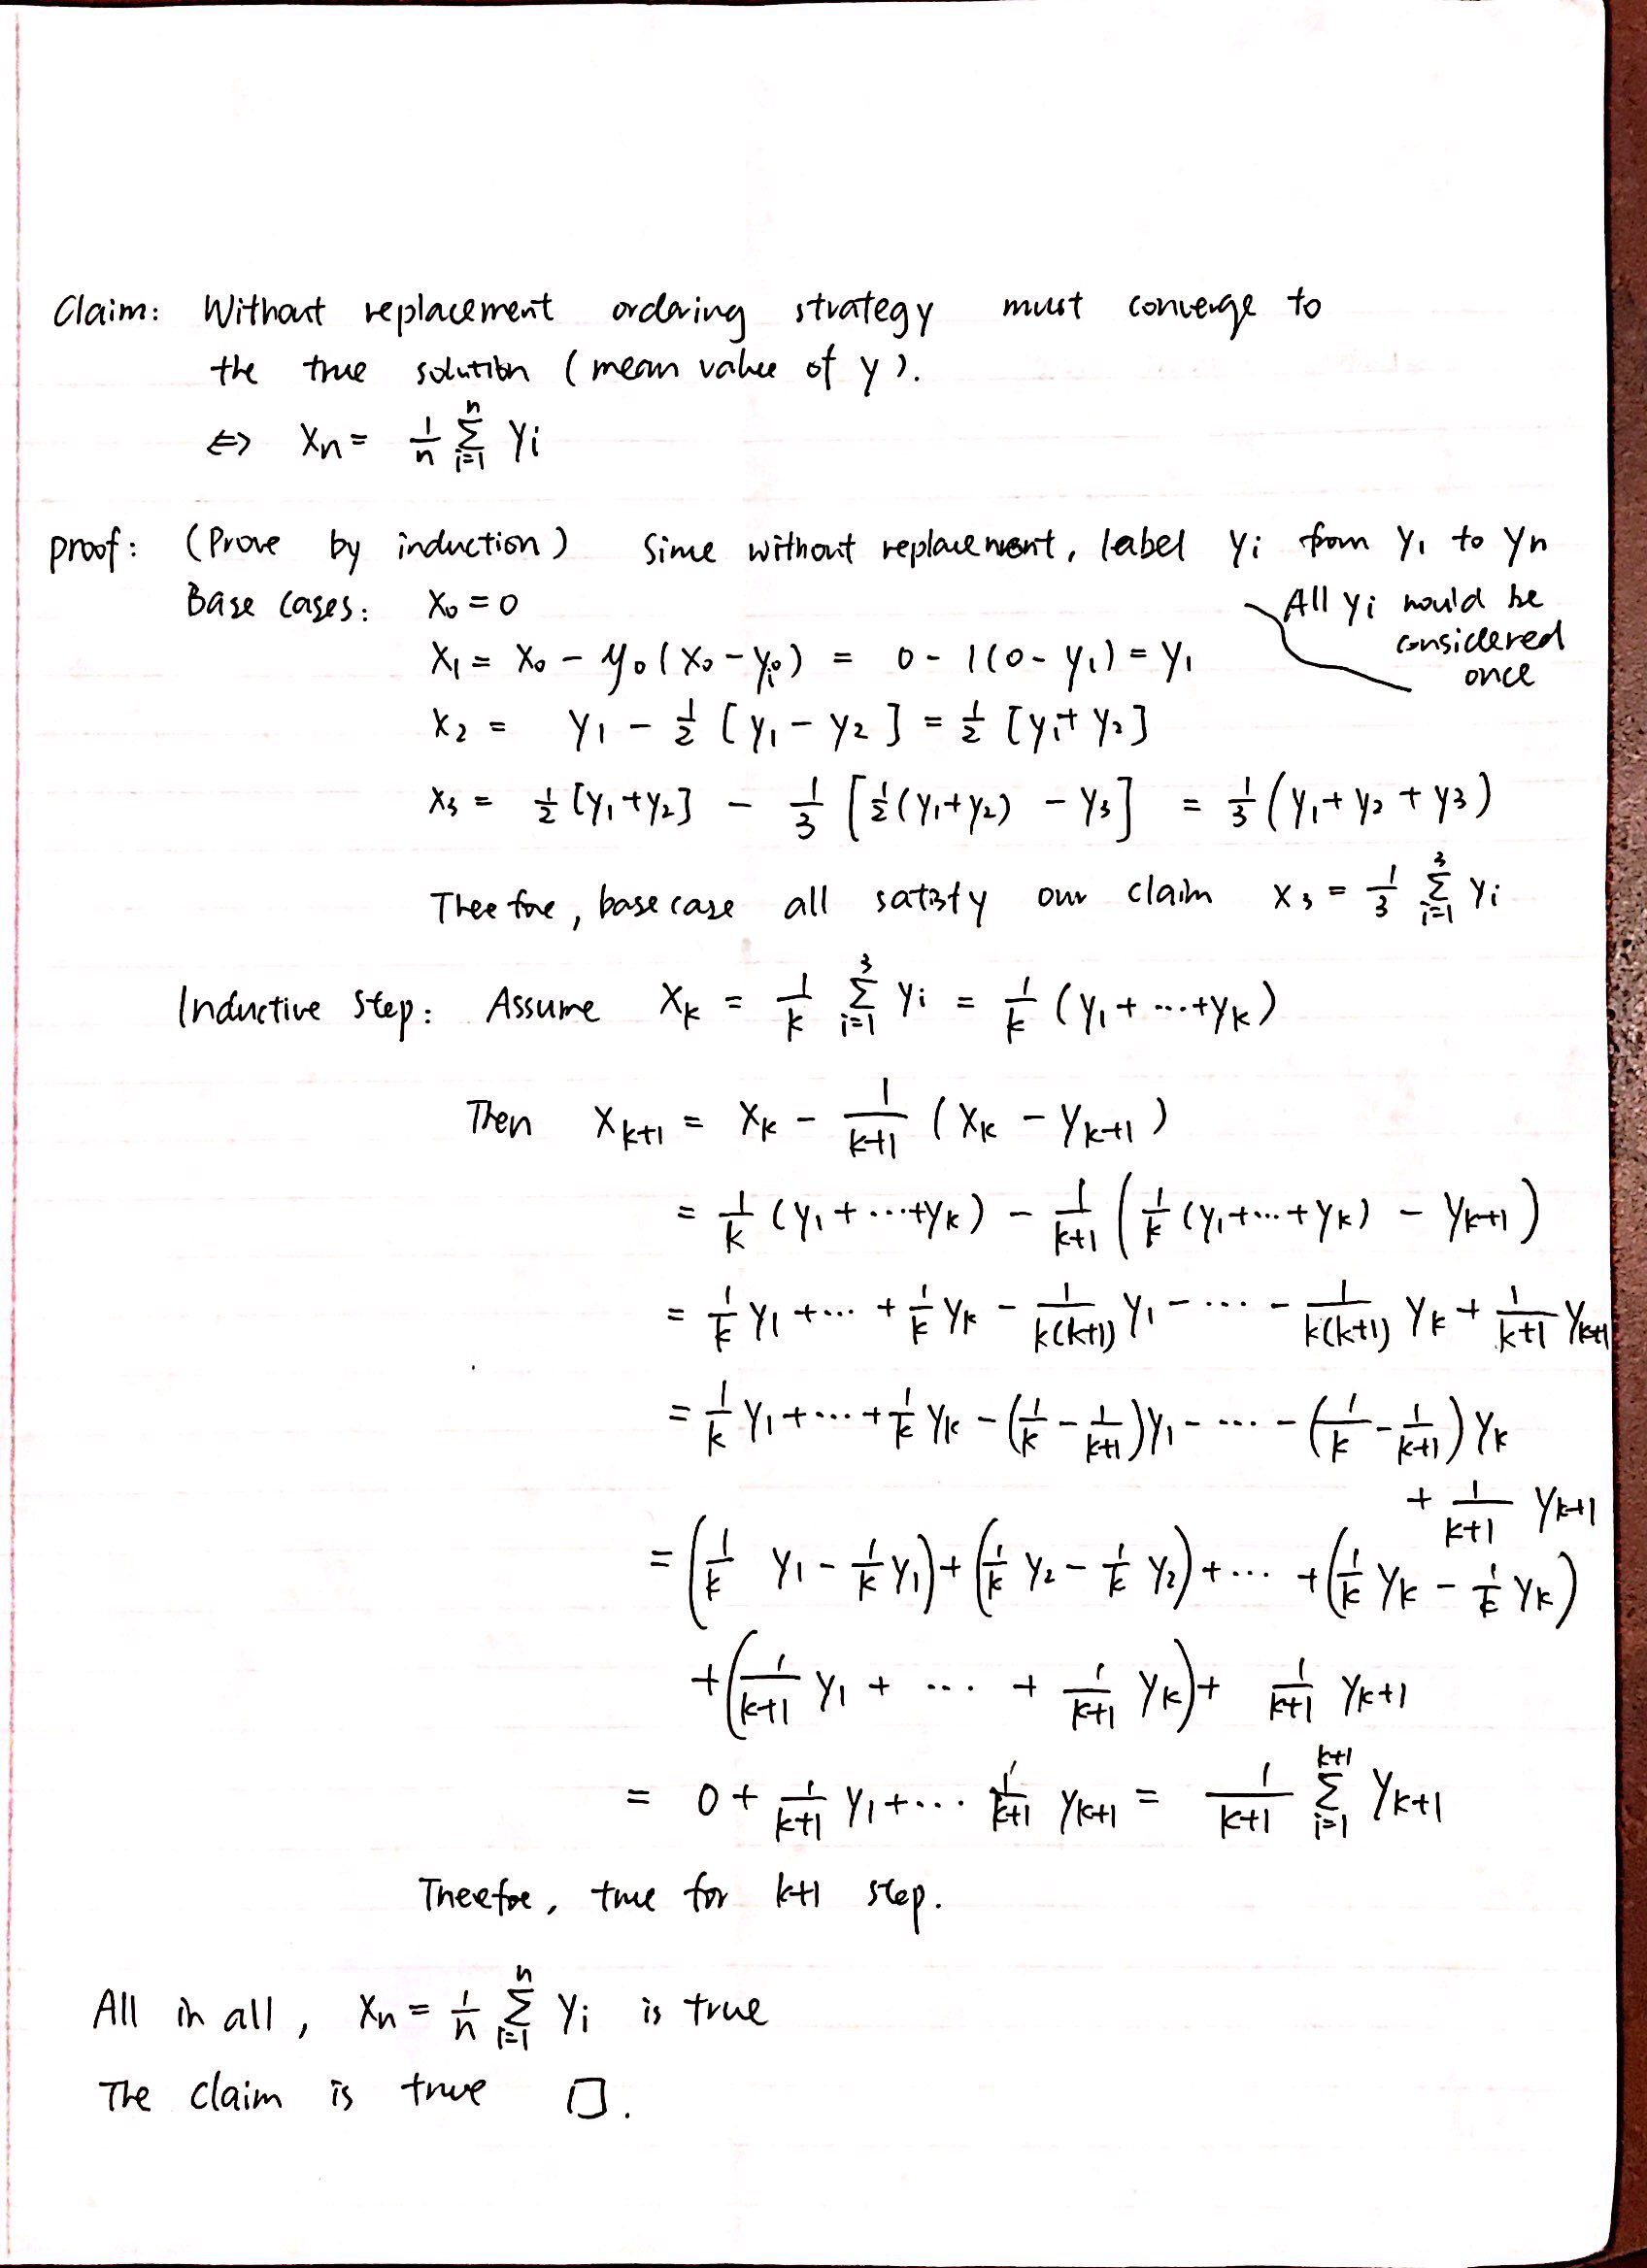 Claim: Without replacement ordering strategy must converge to
the true solution (mean value of y).
⇔ Xn = 1/n Σ_{i=1}^{n} yi
proof: (Prove by induction) Since without replacement, label yi from y1 to yn
Base cases: X0 = 0
All yi would be
considered
once
X1 = X0 - γ0(X0 - yi0) = 0 - 1(0 - y1) = y1
X2 = y1 - 1/2 [y1 - y2] = 1/2 [y1 + y2]
X3 = 1/2 [y1 + y2] - 1/3 [1/2 (y1 + y2) - y3] = 1/3 (y1 + y2 + y3)
Theefore, base case all satisfy our claim X3 = 1/3 Σ_{i=1}^{3} yi
Inductive Step: Assume Xk = 1/k Σ_{i=1}^{3} yi = 1/k (y1 + ... + yk)
Then Xk+1 = Xk - 1/(k+1) (Xk - yk+1)
= 1/k (y1 + ... + yk) - 1/(k+1) (1/k (y1 + ... + yk) - yk+1)
= 1/k y1 + ... + 1/k yk - 1/(k(k+1)) y1 - ... - 1/(k(k+1)) yk + 1/(k+1) yk+1
= 1/k y1 + ... + 1/k yk - (1/k - 1/(k+1)) y1 - ... - (1/k - 1/(k+1)) yk
+ 1/(k+1) yk+1
= (1/k y1 - 1/k y1) + (1/k y2 - 1/k y2) + ... + (1/k yk - 1/k yk)
+ (1/(k+1) y1 + ... + 1/(k+1) yk) + 1/(k+1) yk+1
= 0 + 1/(k+1) y1 + ... 1/(k+1) yk+1 = 1/(k+1) Σ_{i=1}^{k+1} yk+1
Theefore, true for k+1 step.
All in all, Xn = 1/n Σ_{i=1}^{n} yi is true
The claim is true □.